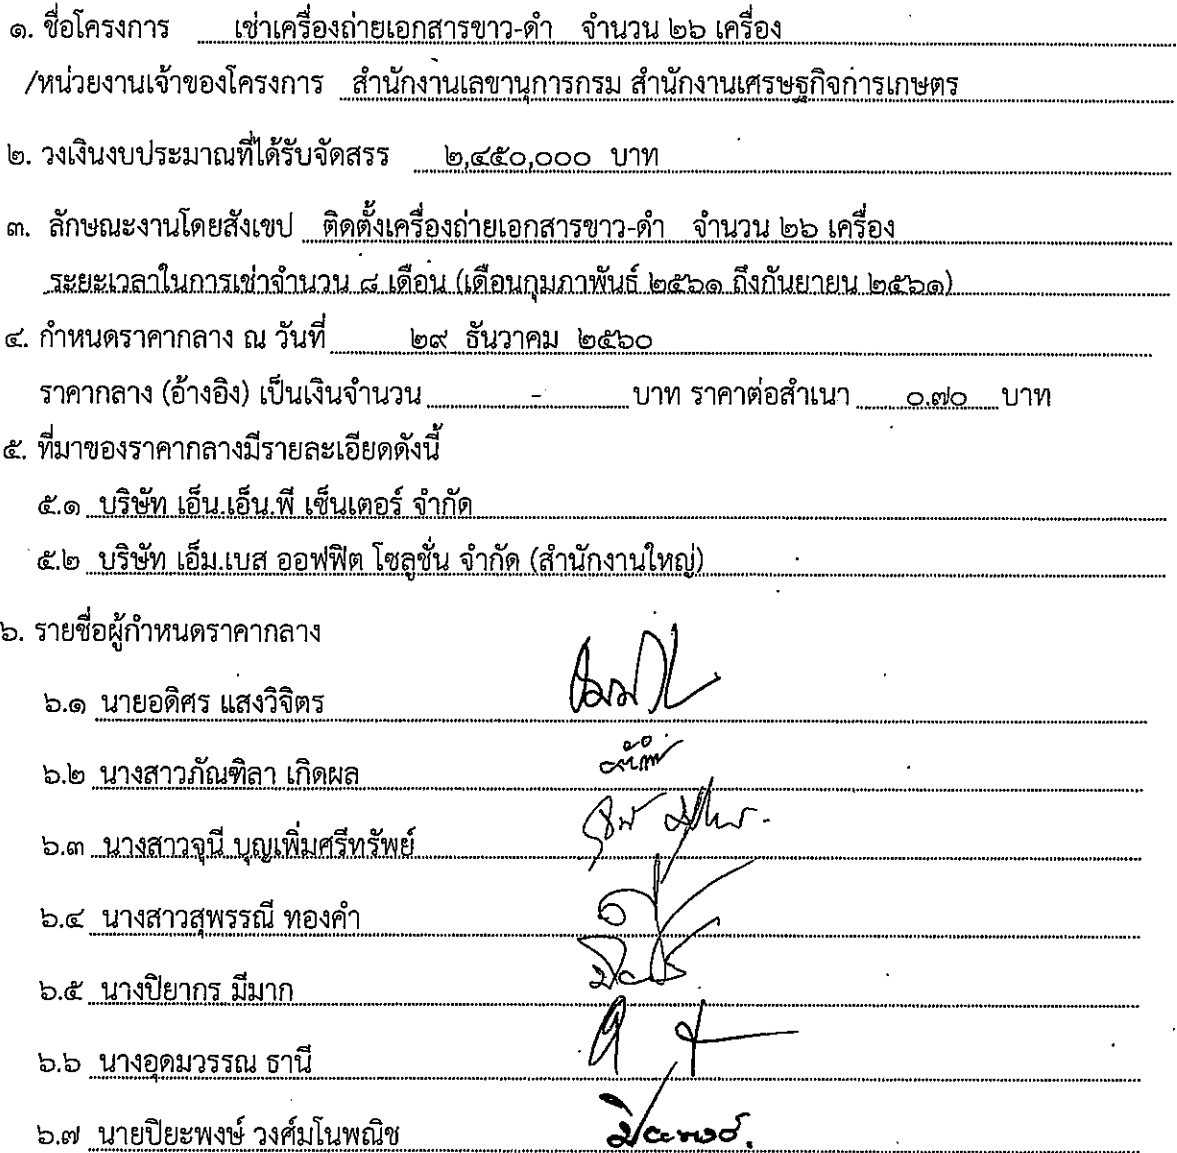 ๑. ชื่อโครงการ เช่าเครื่องถ่ายเอกสารขาว-ดำ จำนวน ๒๖ เครื่อง
/หน่วยงานเจ้าของโครงการ สำนักงานเลขานุการกรม สำนักงานเศรษฐกิจการเกษตร
๒. วงเงินงบประมาณที่ได้รับจัดสรร ๒,๔๕๐,๐๐๐ บาท
๓. ลักษณะงานโดยสังเขป ติดตั้งเครื่องถ่ายเอกสารขาว-ดำ จำนวน ๒๖ เครื่อง
ระยะเวลาในการเช่าจำนวน ๘ เดือน (เดือนกุมภาพันธ์ ๒๕๖๑ ถึงกันยายน ๒๕๖๑)
๔. กำหนดราคากลาง ณ วันที่ ๒๙ ธันวาคม ๒๕๖๐
ราคากลาง (อ้างอิง) เป็นเงินจำนวน - บาท ราคาต่อสำเนา ๐.๗๐ บาท
๕. ที่มาของราคากลางมีรายละเอียดดังนี้
๕.๑ บริษัท เอ็น.เอ็น.พี เซ็นเตอร์ จำกัด
๕.๒ บริษัท เอ็ม.เบส ออฟฟิต โซลูชั่น จำกัด (สำนักงานใหญ่)
๖. รายชื่อผู้กำหนดราคากลาง
๖.๑ นายอดิศร แสงวิจิตร
๖.๒ นางสาวภัณฑิลา เกิดผล
๖.๓ นางสาวจุนี บุญเพิ่มศรีทรัพย์
๖.๔ นางสาวสุพรรณี ทองคำ
๖.๕ นางปิยากร มีมาก
๖.๖ นางอุดมวรรณ ธานี
๖.๗ นายปิยะพงษ์ วงศ์มโนพณิช